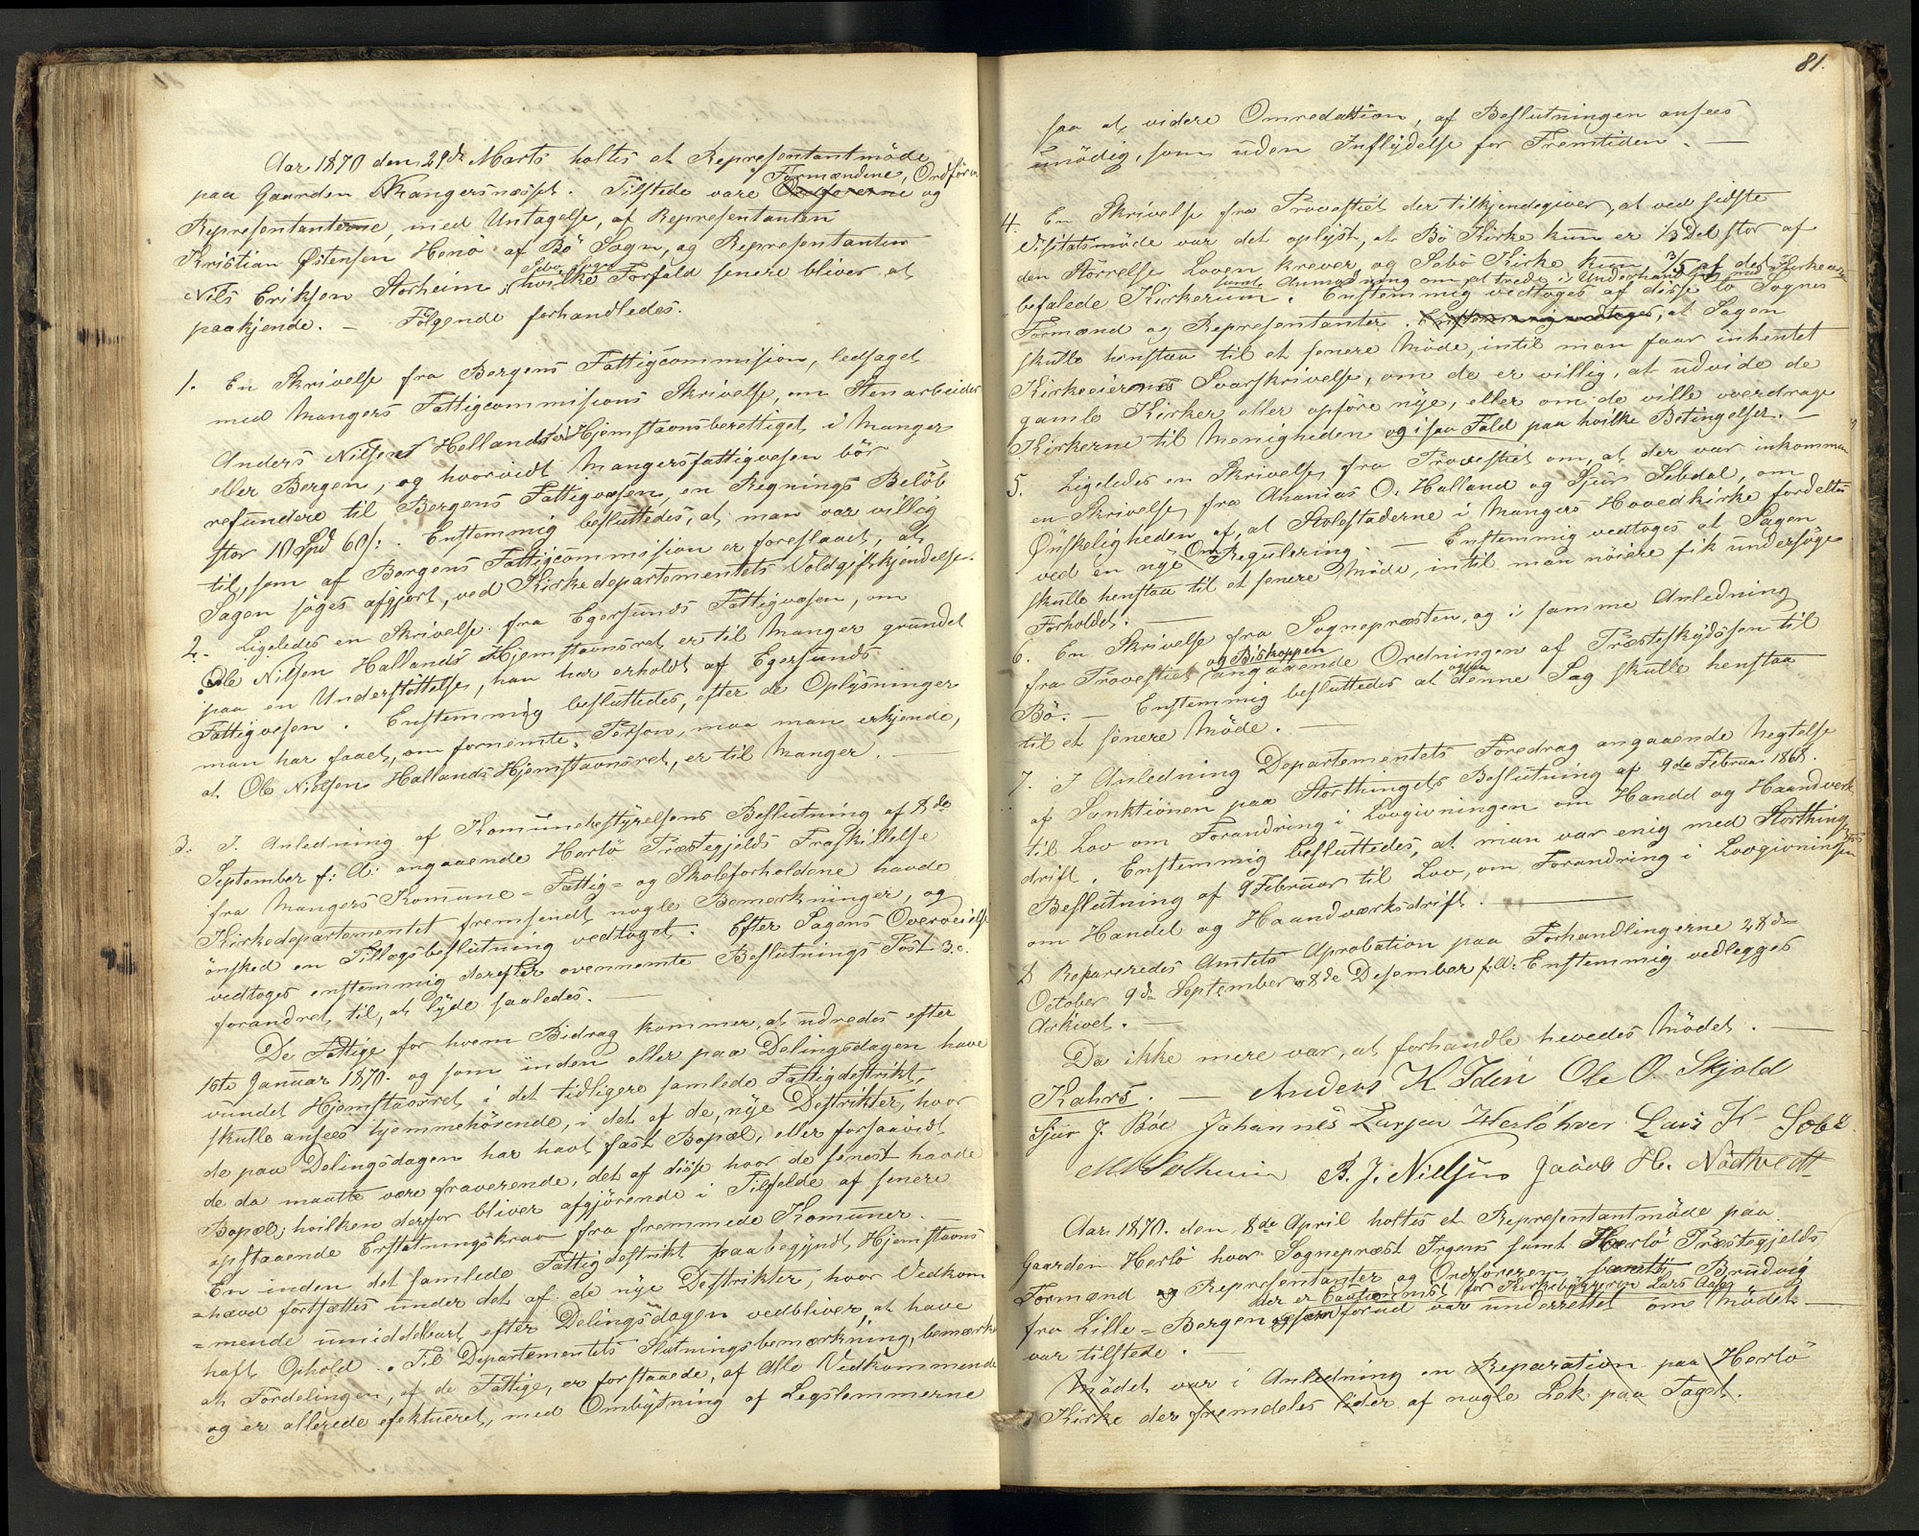 Aar 1870 den 29de Marts holtes et Repræsentantmöde
paa Gaarden Mangersnæsset. Tilstede vare Formændene, Ordförer og
Repræsentanterne, med Untagelse, af Repræsentanten
Kristian Østensen Henö af Bö Sogn, og Repræsentanten
Nils Eriksen Storheim, hvilke Forfald senere bliver at
paakjende. — Følgende forhandledes.
1. En Skrivelse fra Bergens Fattigcommission, ledsaget
med Mangers Fattigcommissions Skrivelse, om Stenarbeider
Anders Nilsen Helland er Hjemstavnsberettiget i Manger
eller Bergen, og hvorvidt Mangersfattigvesen bör
refundere til Bergens Fattigvæsen, en Regnings Belöb
stor 10 Spd 60 s:. Enstemmig besluttedes, at man var villig
til, som af Bergens Fattigcommission er foreslaaet, at
Sagen söges afgjort, ved Kirkedepartementets Voldgiftskjendelse.
2. Ligeledes en Skrivelse fra Egersunds Fattigvæsen, om
Ole Nilsen Hallands Hjemstavnsret er til Manger grundet
paa en Understöttelse, han har erholdt af Egersunds
Fattigvesen. Enstemmig besluttedes, efter de Oplysninger
man har faaet, om fornemte Person, maa man erkjende,
at Ole Nielsen Hallands Hjemstavnsret, er til Manger. —
3. I Anledning af Komunebestyrelsens Beslutning af 8de
September f: A: angaaende Herlö Præstegjelds Fraskillelse
fra Mangers Komune = Fattig = og Skoleforholdene havde
Kirkedepartementet fremsendt nogle Bemerkninger, og
önsked en Tillægsbeslutning vedtaget. Efter Sagens Overveielse
vedtoges enstemmig derefter ovennemte Beslutnings Post 3 c.
forandret til, at lyde saaledes. —
De Fattige for hvem Bidrag kommer, at udredes efter
1ste Januar 1870. og som inden eller paa Delingsdagen have
vundet Hjemstavnsret i det tidligere samlede Fattigdestrikt,
skulle ansees hjemmehörende, i det af de, nye Destrikter, hvor
de paa Delingsdagen har havt fast Bopæl, eller forsaavidt
de da maatte være fraverende, det af disse hvor de senest havde
Bopæl; hvilken derfor bliver afgjörende i Tilfelde af senere
opstaaende Erstatningskrav fra fremmede Komuner.
En inden det samlede Fattigdestrikt paabegyndt Hjemstavns
=hævd fortsættes under det af de nye Destrikter, hvor Vedkom
=mende umiddelbart efter Delingsdagen vedbliver at have
haft Ophold. Til Departementets Slutningsbemærkning, bemærkes
at Fordelingen, af de Fattige, er forstaaede, af Alle Vedkommende
og er allerede efektueret, med Ombytning af Legslemmerne
81.
saa at videre Omredaktion, af Beslutningen ansees
unödig, som uden Inflydelse for Fremtiden. —
4. En Skrivelse fra Provestiet der tilkjendegiver, at ved sidste
Visitatsmöde var det oplyst, at Bö Kirke kun er 1/3 Del stor af
den Störrelse Loven krever og Sæbö Kirke kun 3/5 af det
samt Anmodning om at træde i Underhandling med Kirkeeieren
befalede Kirkerum. Enstemmig vedtoges af disse to Sognes
Formænd og Repræsentanter. Enstemmig vedtoges, at Sagen
skulle henstaa til et senere Möde, intil man faar inhentet
Kirkeeiernes Svarskrivelse, om de er villig, at udvide de
gamle Kirker eller opföre nye, eller om de ville overdrage
Kirkerne til Menigheden og i saa Fald paa hvilke Betingelser. —
5. Ligeledes en Skrivelse fra Provestiet om, at der var inkommen
en Skrivelse fra Ananias O. Halland og Sjur Sebdal, om
Ønskeligheden af, at Stolestaderne i Mangers Hovedkirke fordeltes
ved en nye Om Regulering. — Enstemmig vedtoges at Sagen
skulle henstaa til et senere Möde, intil man nöiere fik undersöge
Forholdet. —
6. En Skrivelse fra Sognepræsten, og i samme Anledning
fra Provestiet og Biskoppen angaaende Ordningen af Præsteskydssen til
Bö. — Enstemmig besluttedes at denne Sag skulle henstaa
til et senere Möde. —
7. I Anledning Departementets Foredrag angaaende Negtelse
af Sanktionen paa Storthingets Beslutning af 9de Februar 1869.
til Lov om Forandring i Lovgivningen om Handel og Haandverk
drift. Enstemmig besluttedes, at man var enig med Storthingets
Beslutning af 9 Februar til Lov, om Forandring i Lovgivningen
om Handel og Haandværksdrift. —
8 Refereredes Amtets Aprobation paa Forhandlingerne 28de
October 9de September 8de Desember f: A: Enstemmig vedlegges
Arkivet. —
Da ikke mere var, at forhandle hevedes Mödet. —
Kahrs. — Anders K Iden Ole O. Skjold
Sjur J. Böe Johannes Larsen Herlöhver Lars H Sæbö
B. J. Nielsen Jacob H. Nödtvedt
Aar 1870. den 8de April holtes et Repræsentantmöde paa
Gaarden Herlö hvor Sognepræst Irgens samt Herlö Præstegjelds
Formænd og Repræsentanter og Ordföreren samt Brudvig
der er Cautionist for Kirkebyggeren Lars Aase
fra Lille=Bergen og som forud var underrettet om Mödet —
var tilstede. —
Mödet var i Anledning en Reparation paa Herlö
Kirke der fremdeles lider af nogle Læk paa Taget.